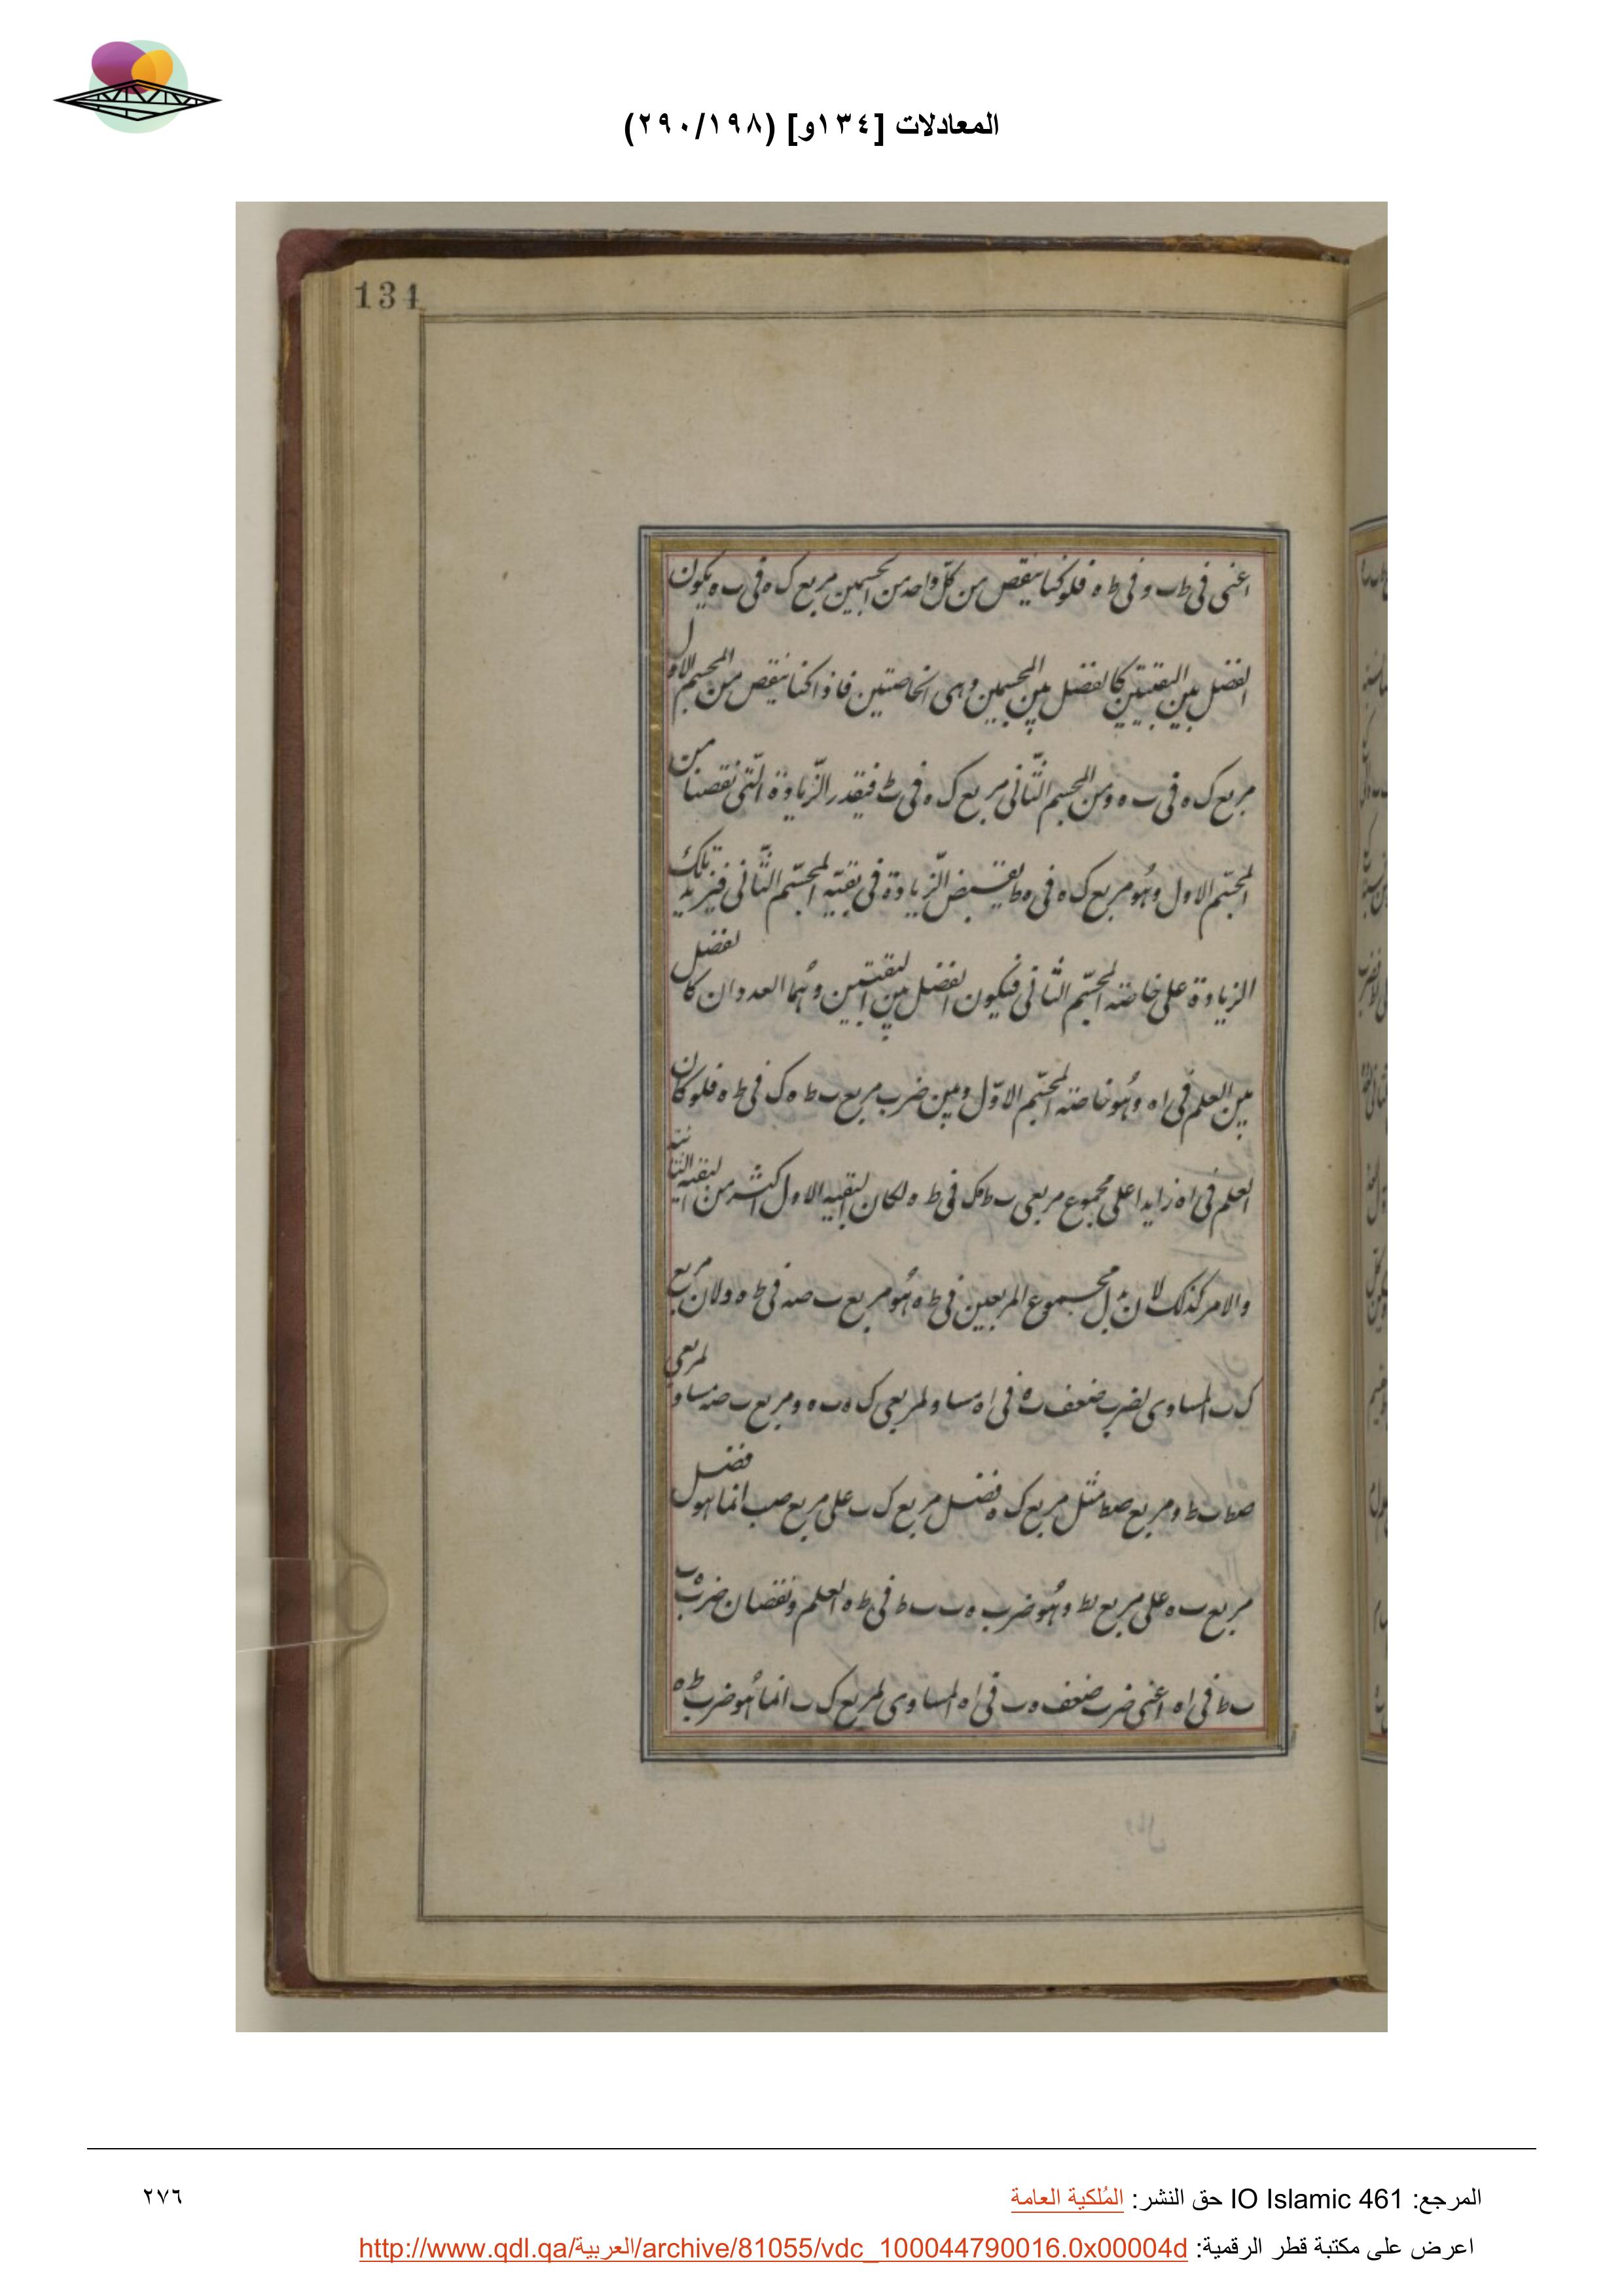 المعادلات [١٣٤و] (٢٩٠/١٩٨)
134
اعنى فى ط ب و فى ط ه فلو كنا ننقص من كل واحد من المجسمين مربع ك ه فى ب ه يكون
الفضل بين البقيتين كالفضل بين المجسمين وهى الخاصتين فاذا كنا ننقص من المجسم الاول
مربع ك ه فى ب ه ومن المجسم الثانى مربع ك ه فى ط فبقدر الزيادة التى نقصنا من
المجسم الاول وهو مربع ك ه فى ه ط الزيادة فى بقية المجسم الثانى فنزيد تلك
الزيادة على خاصة المجسم الثانى فيكون الفضل بين البقيتين وهما العددان كالفضل
بين العلم فى ا ه وهو خاصة المجسم الاول وبين ضرب مربع ب ط ه ك فى ط ه فلو كان
العلم فى ا ه زايدا على مجموع مربعى ب ط ه ك فى ط ه لكان البقيه الاول اكثر من البقية الثانية
والامر كذلك لان مجموع المربعين فى ط ه هو مربع ب صه فى ط ه ولان مربع
ك ب المساوى لضرب ضعف ب ه فى ا ه مساو لمربعى ك ه ب ه ومربع ب صه مساو لمربعى
صط ب ط ومربع صط مثل مربع ك ه فضل مربع ك ب على مربع صب انما هو فضل
مربع ب ه على مربع ب ط وهو ضرب ه ب ب ط فى ط ه العلم ونقصان ضرب ه ب
ب ط فى ا ه اعنى ضرب ضعف ه ب فى ا ه المساوى لمربع ك ب انما هو ضرب ط ه
المرجع: IO Islamic 461 حق النشر: المُلكية العامة
٢٧٦
اعرض على مكتبة قطر الرقمية: http://www.qdl.qa/العربية/archive/81055/vdc_100044790016.0x00004d